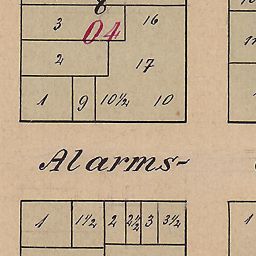 8
3 04 16
2 17
1 9 10½ 10
Alarms-
1 1½ 2 2½ 3 3½ 1